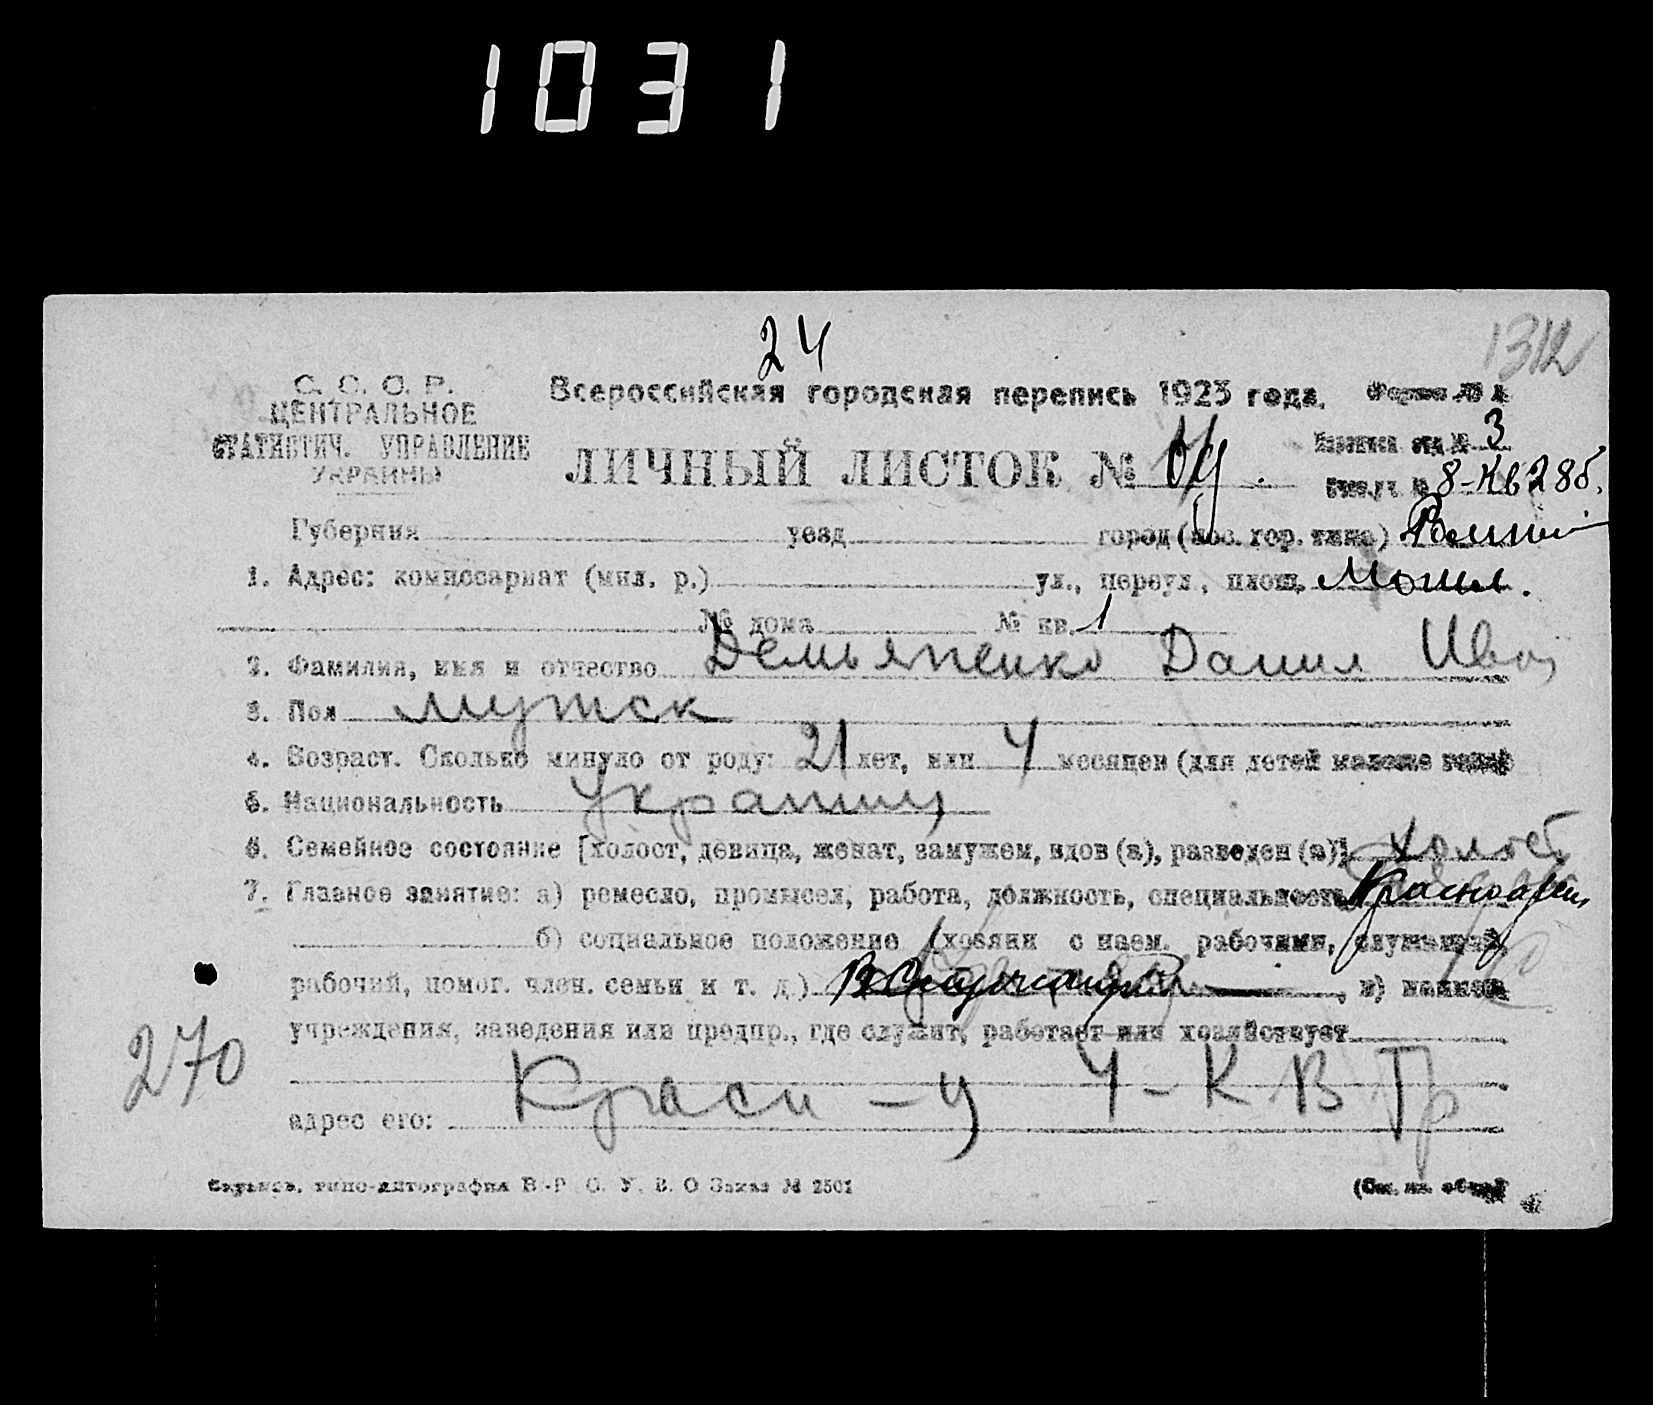 1031
24
1312
С. С. С. Р.
ЦЕНТРАЛЬНОЕ
СТАТИСТИЧ. УПРАВЛЕНИЕ
УКРАИНЫ
Всероссийская городская перепись 1923 года. Форма №
ЛИЧНЫЙ ЛИСТОК №
отд № 3
№ 8-Кв 28б.
Губерния уезд город (пос. гор. типа)
1. Адрес: комиссариат (мил. р.) ул., переул., площ.
№ дома № кв. 1
2. Фамилия, имя и отчество Демьяненко Данил Иван
3. Пол мужск
4. Возраст. Сколько минуло от роду: 21 лет, или 4 месяцев (для детей моложе
5. Национальность Украинец
6. Семейное состояние [холост, девица, женат, замужем, вдов (а), разведен (а)] холост
7. Главное занятие: а) ремесло, промысел, работа, должность, специальность Красноарм.
б) социальное положение (хозяин с наем. рабочими, служащий,
рабочий, помог. член. семьи и т. д.) в)
учреждения, заведения или предпр., где служит, работает или хозяйствует
270
Красн - ц 4 - К В Пр
адрес его:
Харьков, типо-литография В-Р С. У. В. О Заказ № 2501
(См. на обор.)